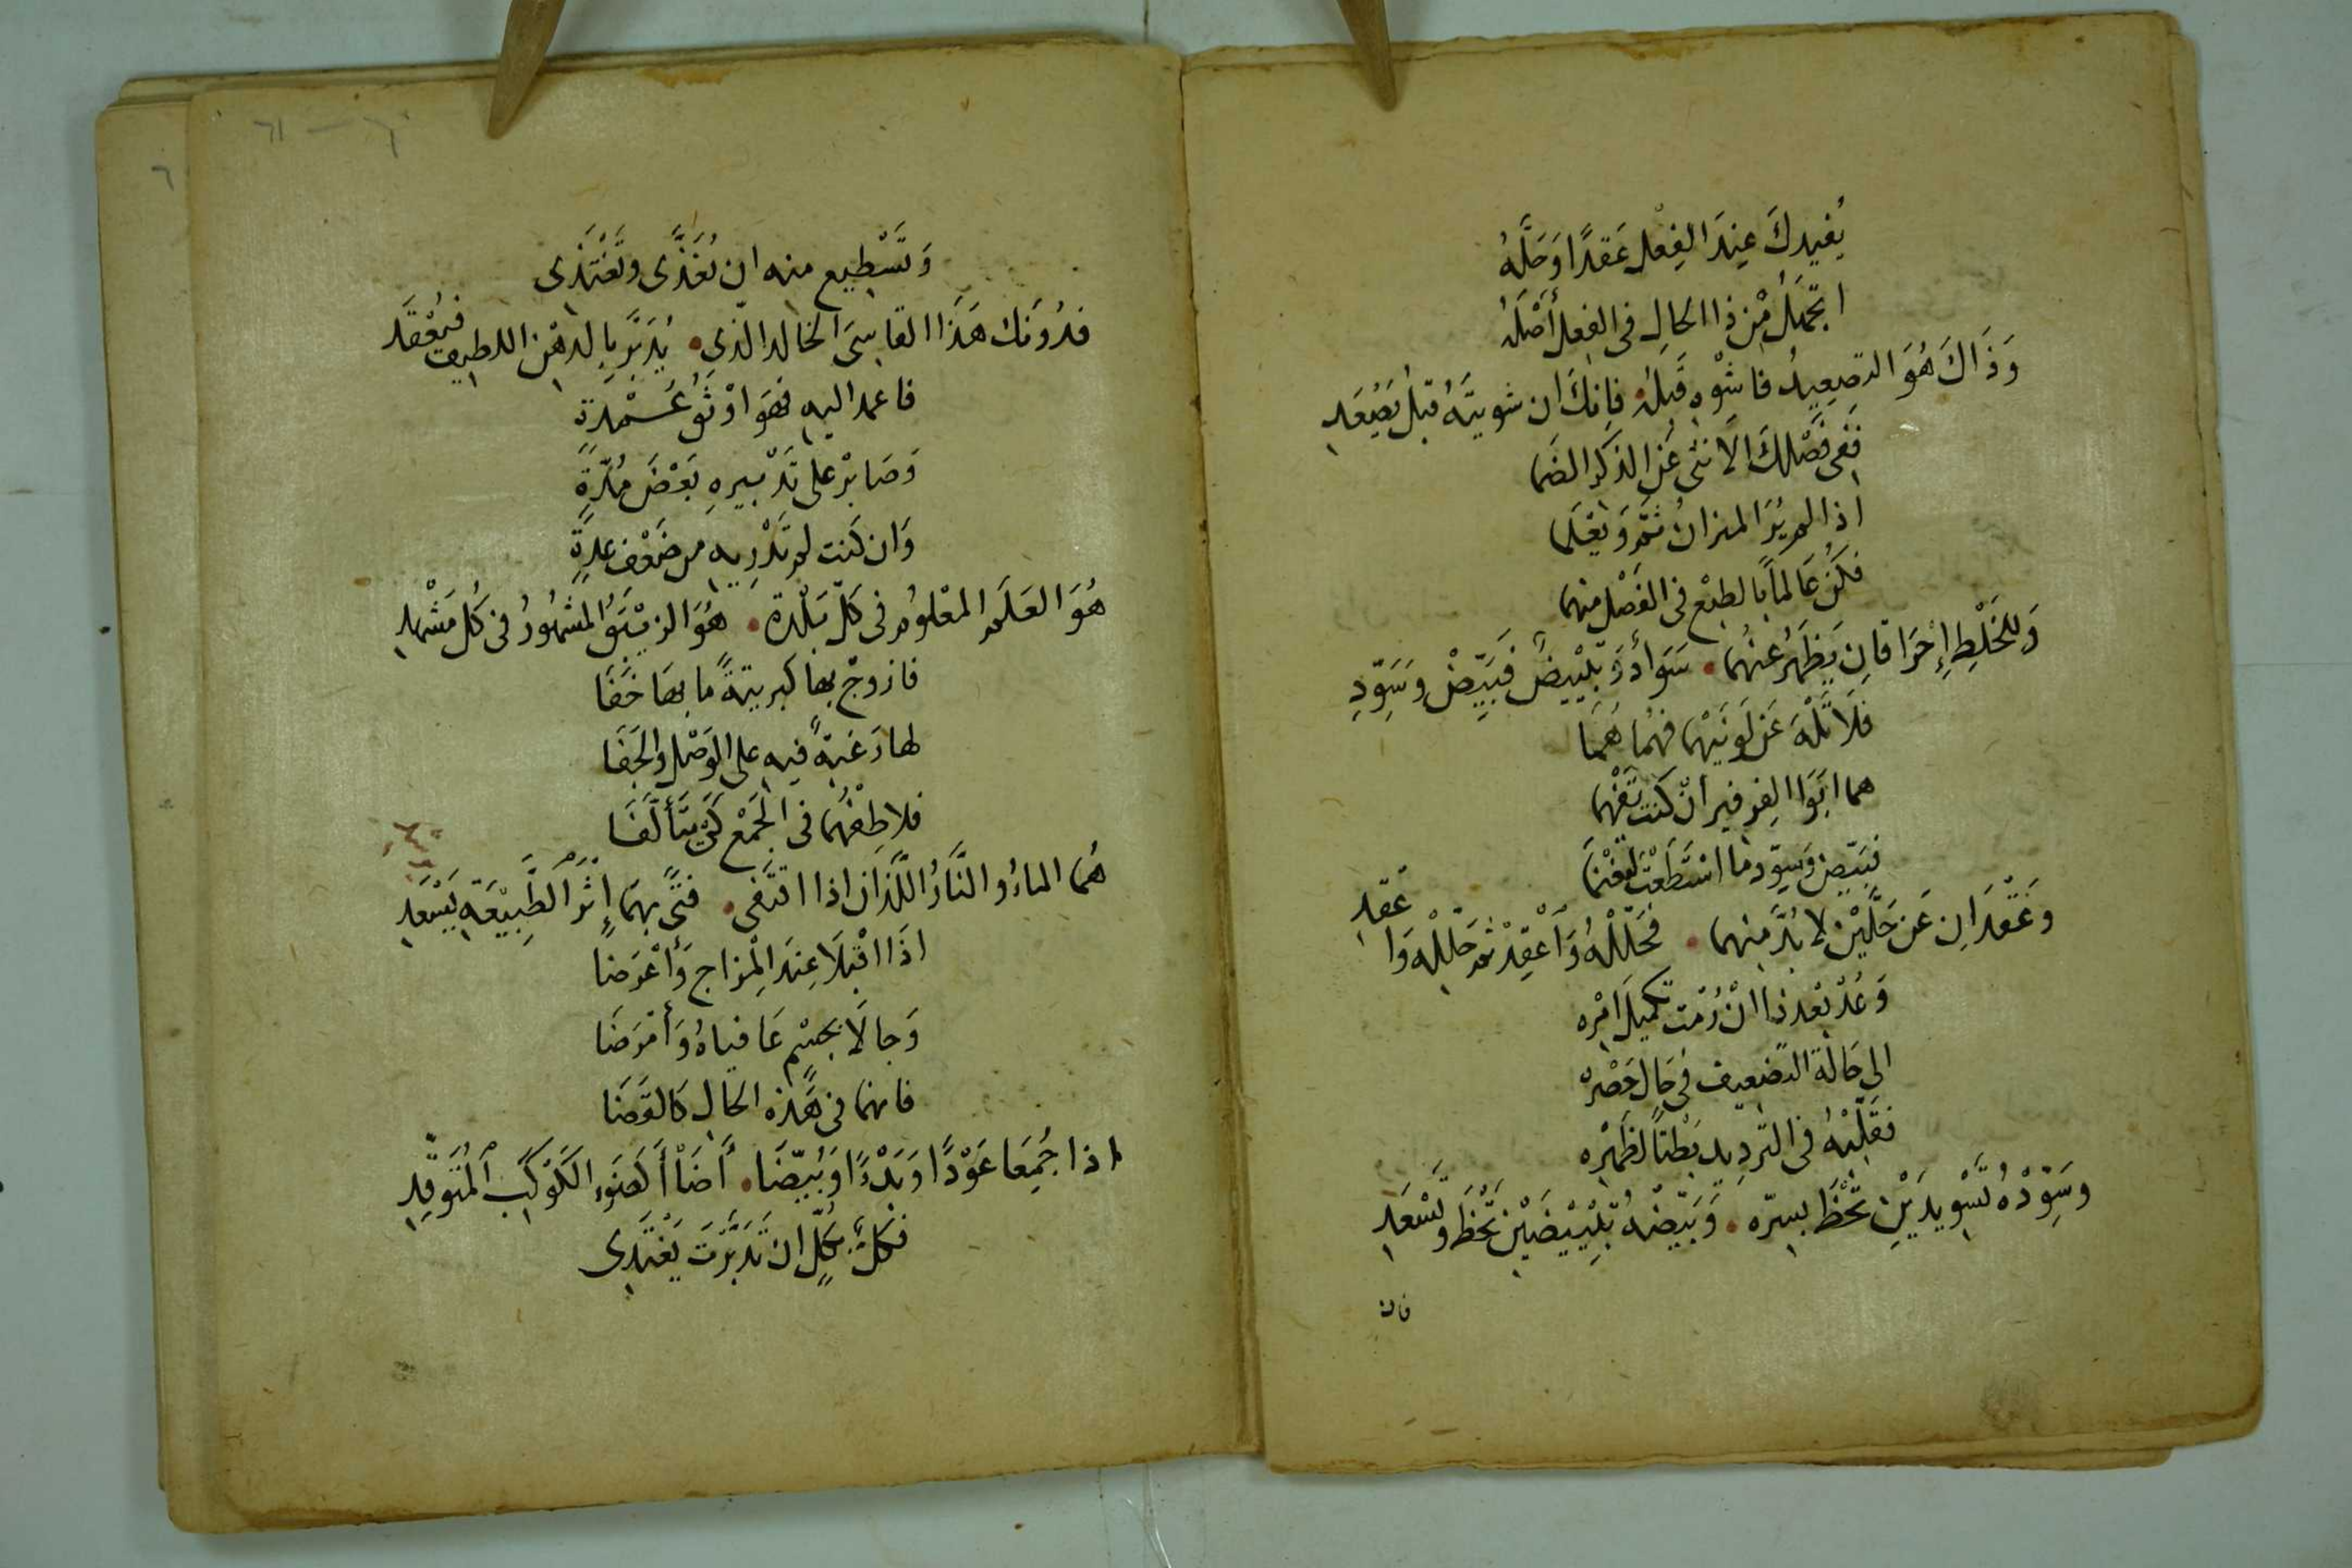 يُفيدكَ عِندَ الفِعل عَقدًا وَحَلَّهُ
الحال في الفعل أَصْلَهُ
وَذَاكَ هُوَ التصعِيدُ فاشْوِه قَبلهُ فإنكَ ان شويتَهُ قبلُ يَصْعَد
فَفي فَصْلكَ الأنثى عَنِ الذكر
اذا لم يُرَ الميزانُ ثمَّ وَيعْلما
فكُن عَالماً بالطبْع في الفَصْل منهما
وَللخَلْطِ إحْرَاقانِ يَظهَرُ عنهُما سَوادٌ وَتَبْييضٌ فَبَيِّضْ وَسَوِّدِ
فلَا تَلْهَ عَن لَونَيْهما فهُما هُمَا
هما ابَوَا الفرفير انْ كنت تَفْهما
فبَيّض وَسَوِّد ما اسْتَطَعْتَ لتغْنَمَا
وعَقْدَانِ عَن حَلَّيْن لا بُدَّ منهما فحَلّلْهُ وَاعْقِدْ ثم حَلّلْه وَاعْقِد
وَعُدْ بَعْدَ ذا انْ رُمْت تكميلَ امْره
الى حَالة التضعيف في حَال حَصْره
فقَلّبْهُ في التّرديد بَطْنًا لظَهْرِه
وسَوِّدْهُ تَسْويدَيْنِ تَحْظَ بسرّه وَبَيّضْهُ تَبْييضَيْن تَحْظَ وَتَسْعَدِ
فان
وَتَسْطيع منه ان تُغَذَّى وتَغْتَذى
فدُونَك هَذَا القاسىَ الخالد الّذي يُدَبَّر بالدهْن اللطيف فيُعْقَد
فاعمد اليه فهوَ اوْثَقُ عُمْدةٍ
وَصَابرْ على تَدْبيرهِ بَعْضَ مُدّةٍ
وَان كنت لم تَدْرِيه من ضَعْف عدةٍ
هُوَ العَلَم المعْلوم في كلّ بَلْدة هُوَ الزيْبَقُ المشهُورُ في كُلّ مَشْهد
فازوجْ بها كبريتةً ما بها خَفَا
لها رَغبةً فيه على الوَصْل والجَفَا
فلاطِفْهُما في الجَمْع كَيْ يتَألَّفَا
هُما الماءُ والنَّارُ اللَّذان اذا اقتَفى فتًى بهمَا إِثْرَ الطَّبِيْعَةِ يَسْعَد
اذَا اقْبَلَا عِندَ المِزاج وَأعْرَضا
وَجالَا بجسْمٍ عَافياهُ وَأمْرَضَا
فانهما في هَذه الحال كالقَضَا
اذا جُمِعَا عَوْدًا وَبَدْءًا وَبُيّضَا أضَاْ أَ كضَوْءِ الكَوْكَبِ المُتَوقِّدِ
فكلٌّ بكلٍّ ان تَدَبَّرتَ يَغْتَدى